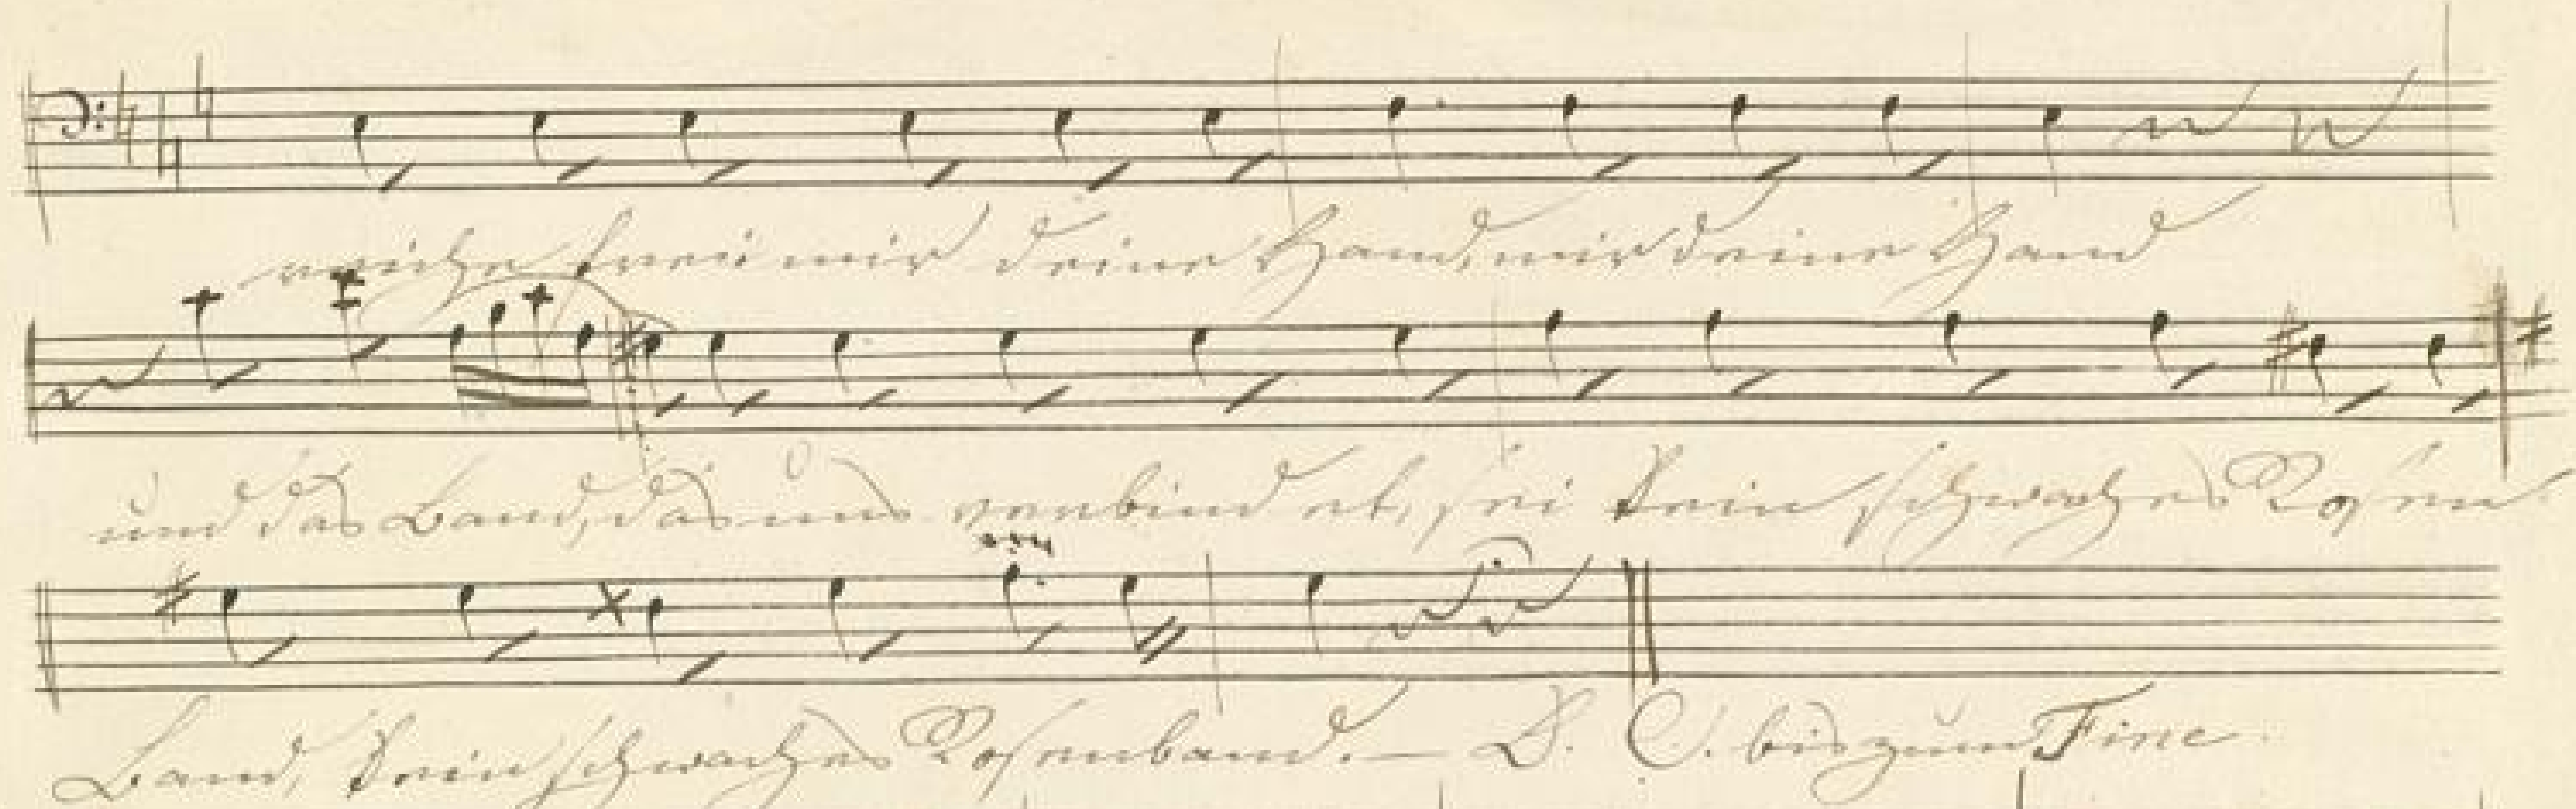 reiche frei mir deine Hand, mir deine Hand
und das Band, das uns verbindet, sei kein schwaches Rosen-
Band, kein schwaches Rosenband. — D. C. bis zum Fine.